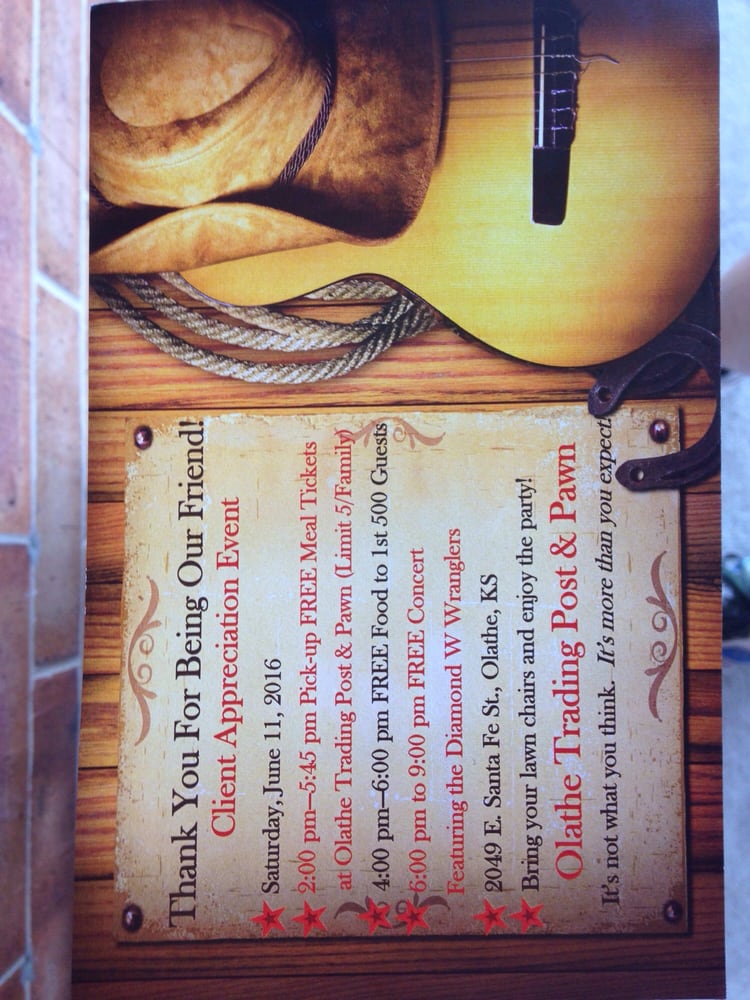 Thank You For Being Our Friend!
Client Appreciation Event
Saturday, June 11, 2016
2:00 pm—5:45 pm Pick-up FREE Meal Tickets
at Olathe Trading Post & Pawn (Limit 5/Family)
4:00 pm—6:00 pm FREE Food to 1st 500 Guests
6:00 pm to 9:00 pm FREE Concert
Featuring the Diamond W Wranglers
2049 E. Santa Fe St., Olathe, KS
Bring your lawn chairs and enjoy the party!
Olathe Trading Post & Pawn
It's not what you think. It's more than you expect!